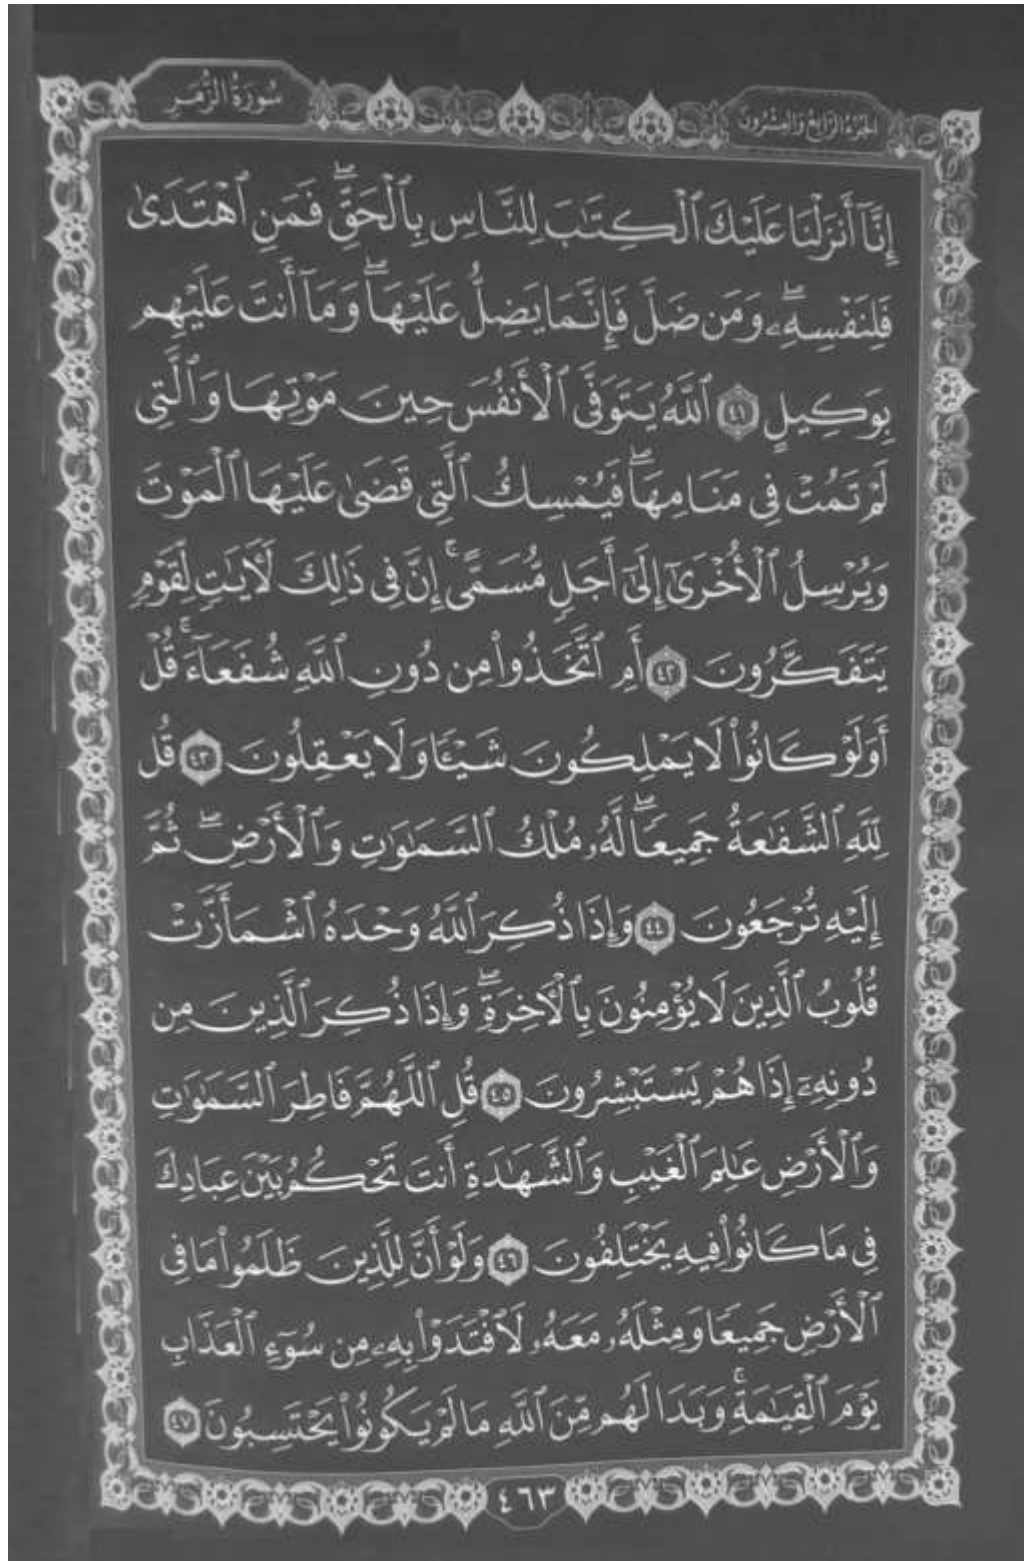 الجزء الرابع والعشرون
سُورَةُ الزُّمَرِ
إِنَّآ أَنزَلْنَا عَلَيْكَ ٱلْكِتَٰبَ لِلنَّاسِ بِٱلْحَقِّۖ فَمَنِ ٱهْتَدَىٰ
فَلِنَفْسِهِۦۖ وَمَن ضَلَّ فَإِنَّمَا يَضِلُّ عَلَيْهَاۖ وَمَآ أَنتَ عَلَيْهِم
بِوَكِيلٍ ٤١ ٱللَّهُ يَتَوَفَّى ٱلْأَنفُسَ حِينَ مَوْتِهَا وَٱلَّتِى
لَمْ تَمُتْ فِى مَنَامِهَاۖ فَيُمْسِكُ ٱلَّتِى قَضَىٰ عَلَيْهَا ٱلْمَوْتَ
وَيُرْسِلُ ٱلْأُخْرَىٰٓ إِلَىٰٓ أَجَلٍ مُّسَمًّىۚ إِنَّ فِى ذَٰلِكَ لَءَايَٰتٍ لِّقَوْمٍ
يَتَفَكَّرُونَ ٤٢ أَمِ ٱتَّخَذُوا۟ مِن دُونِ ٱللَّهِ شُفَعَآءَۚ قُلْ
أَوَلَوْ كَانُوا۟ لَا يَمْلِكُونَ شَيْـًٔا وَلَا يَعْقِلُونَ ٤٣ قُل
لِّلَّهِ ٱلشَّفَٰعَةُ جَمِيعًاۖ لَّهُۥ مُلْكُ ٱلسَّمَٰوَٰتِ وَٱلْأَرْضِۖ ثُمَّ
إِلَيْهِ تُرْجَعُونَ ٤٤ وَإِذَا ذُكِرَ ٱللَّهُ وَحْدَهُ ٱشْمَأَزَّتْ
قُلُوبُ ٱلَّذِينَ لَا يُؤْمِنُونَ بِٱلْءَاخِرَةِۖ وَإِذَا ذُكِرَ ٱلَّذِينَ مِن
دُونِهِۦٓ إِذَا هُمْ يَسْتَبْشِرُونَ ٤٥ قُلِ ٱللَّهُمَّ فَاطِرَ ٱلسَّمَٰوَٰتِ
وَٱلْأَرْضِ عَٰلِمَ ٱلْغَيْبِ وَٱلشَّهَٰدَةِ أَنتَ تَحْكُمُ بَيْنَ عِبَادِكَ
فِى مَا كَانُوا۟ فِيهِ يَخْتَلِفُونَ ٤٦ وَلَوْ أَنَّ لِلَّذِينَ ظَلَمُوا۟ مَا فِى
ٱلْأَرْضِ جَمِيعًا وَمِثْلَهُۥ مَعَهُۥ لَٱفْتَدَوْا۟ بِهِۦ مِن سُوٓءِ ٱلْعَذَابِ
يَوْمَ ٱلْقِيَٰمَةِۚ وَبَدَا لَهُم مِّنَ ٱللَّهِ مَا لَمْ يَكُونُوا۟ يَحْتَسِبُونَ ٤٧
٤٦٣